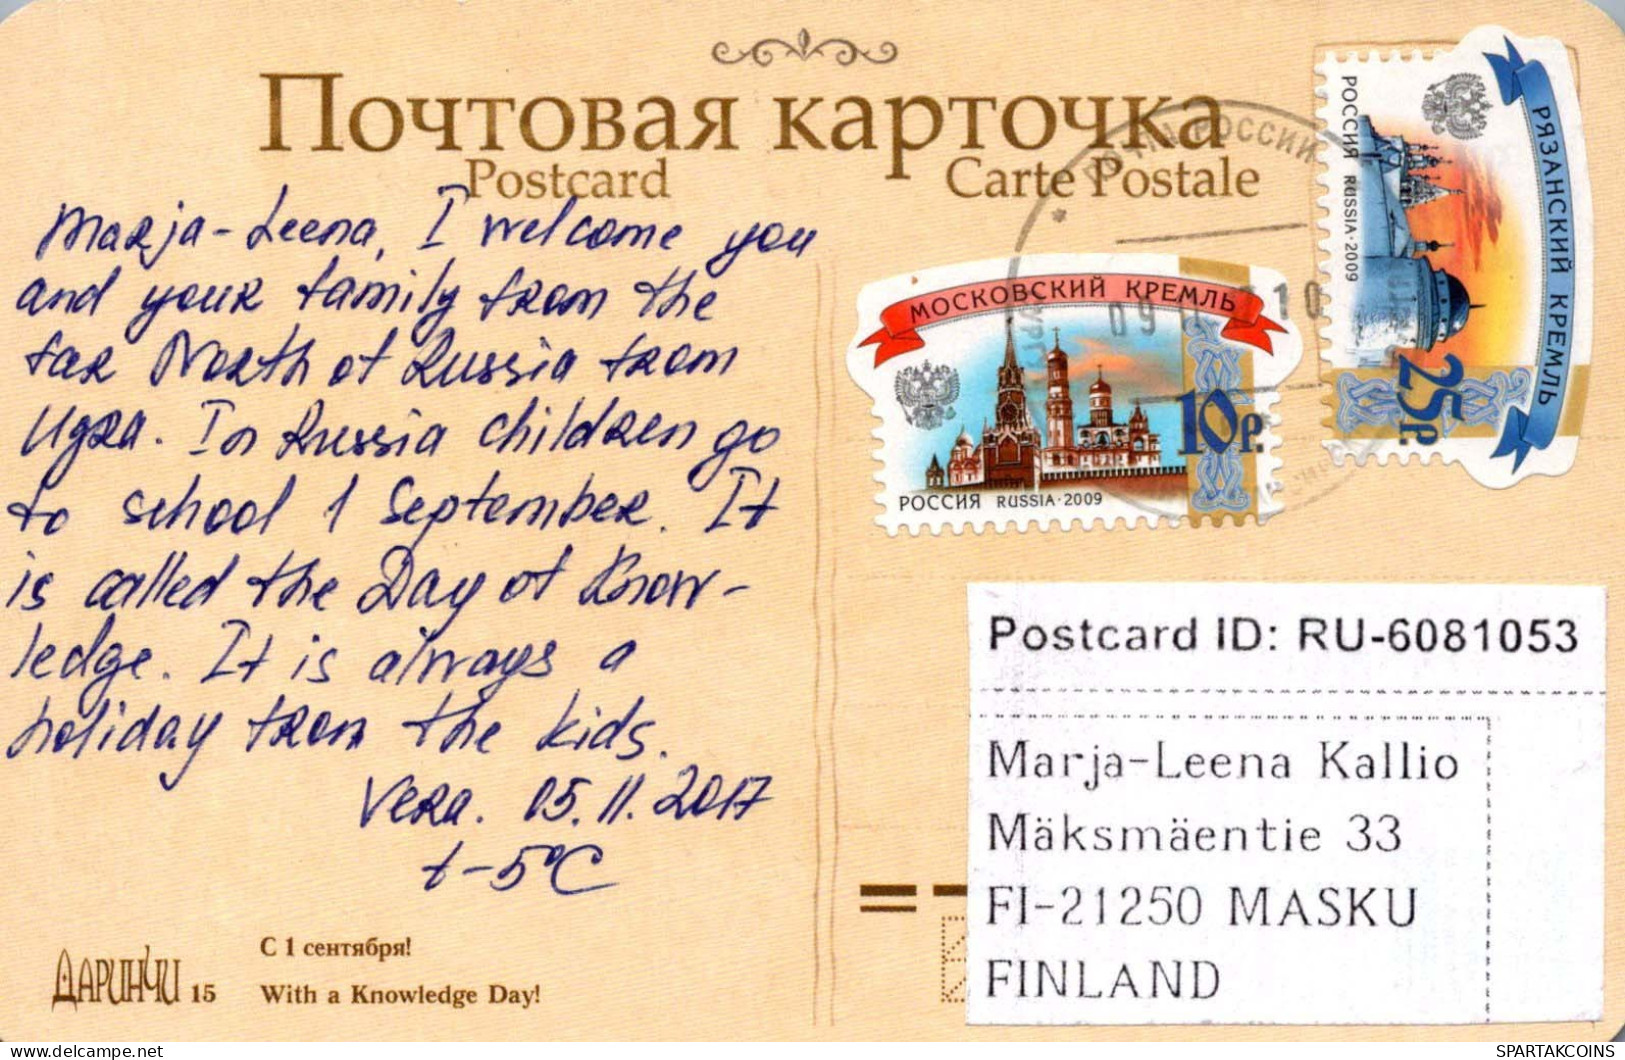 Почтовая карточка
Postcard
Carte Postale
Marja-Leena, I welcome you
and your family from the
far North of Russia from
Ugra. In Russia children go
to school 1 September. It
is called the Day of Know-
ledge. It is always a
holiday from the kids.
Vera. 05.11.2017
t-5°C
ДАРИНЧИ 15
С 1 сентября!
With a Knowledge Day!
МОСКОВСКИЙ КРЕМЛЬ
10р.
РОССИЯ RUSSIA·2009
РЯЗАНСКИЙ КРЕМЛЬ
25р.
РОССИЯ RUSSIA·2009
ПОЧТА РОССИИ
09 11
10
Postcard ID: RU-6081053
Marja-Leena Kallio
Mäksmäentie 33
FI-21250 MASKU
FINLAND
delcampe.net
SPARTAKCOINS